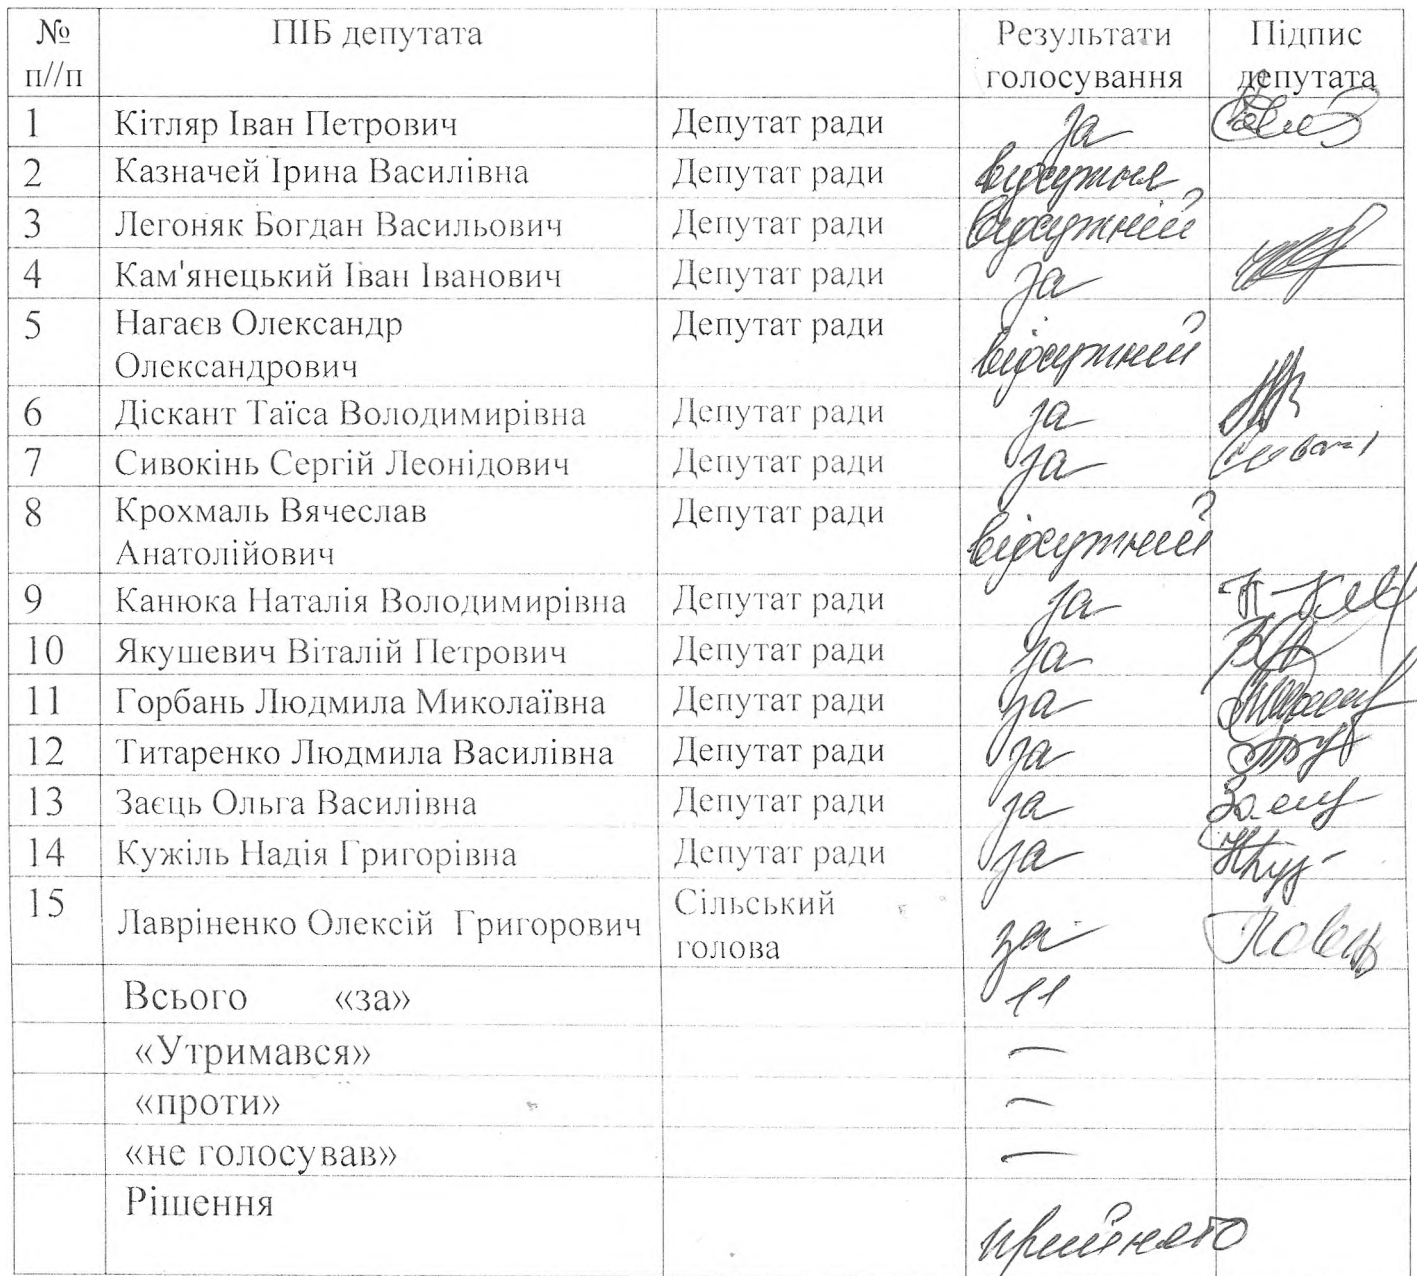 № ПІБ депутата Результати Підпис
п//п голосування депутата
1 Кітляр Іван Петрович Депутат ради за
2 Казначей Ірина Василівна Депутат ради відсутня
3 Легоняк Богдан Васильович Депутат ради відсутній
4 Кам'янецький Іван Іванович Депутат ради за
5 Нагаєв Олександр Депутат ради
Олександрович відсутній
6 Діскант Таїса Володимирівна Депутат ради за
7 Сивокінь Сергій Леонідович Депутат ради за
8 Крохмаль Вячеслав Депутат ради
Анатолійович відсутний
9 Канюка Наталія Володимирівна Депутат ради за
10 Якушевич Віталій Петрович Депутат ради за
11 Горбань Людмила Миколаївна Депутат ради за
12 Титаренко Людмила Василівна Депутат ради за
13 Заєць Ольга Василівна Депутат ради за
14 Кужіль Надія Григорівна Депутат ради за
15 Сільський
Лавріненко Олексій Григорович голова за
Всього «за» 11
«Утримався» —
«проти» —
«не голосував» —
Рішення
прийнято